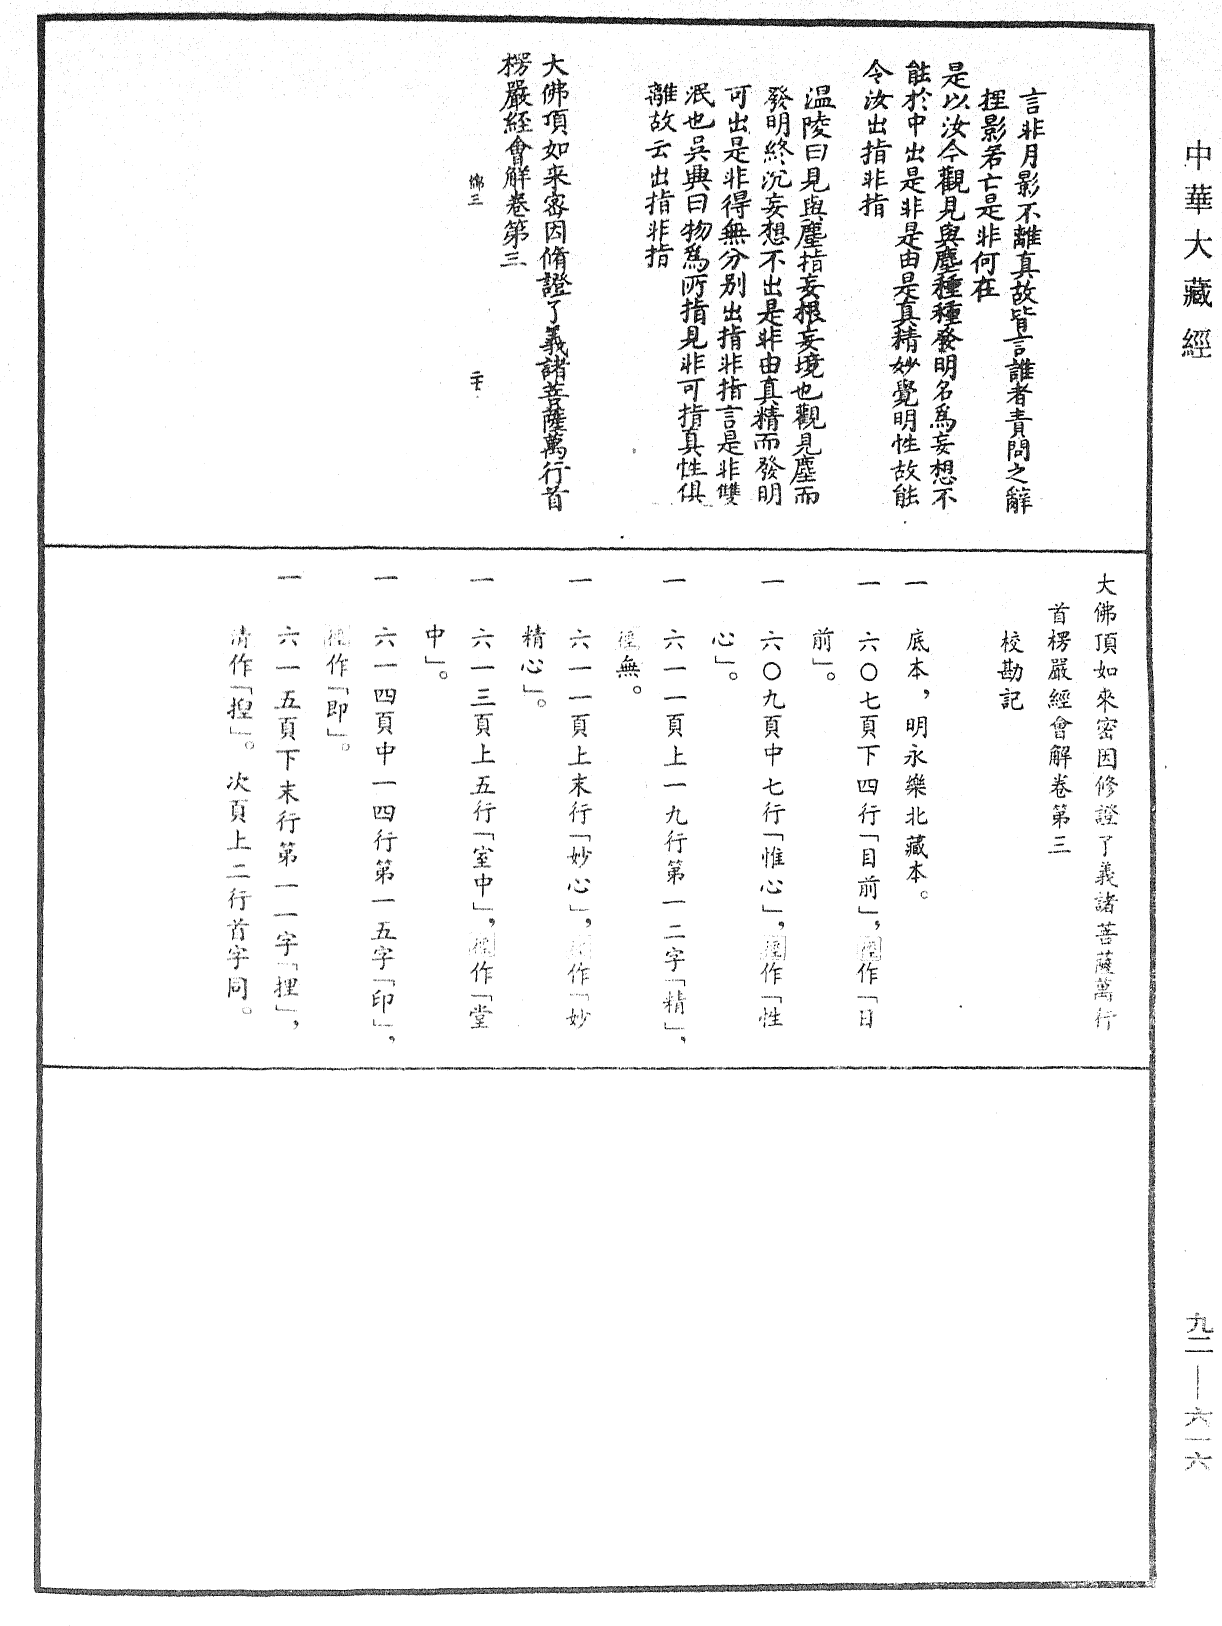 中華大藏經
言非月影不離真故皆言誰者責問之辭
捏影若亡是非何在
是以汝今觀見與塵種種發明名為妄想不
能於中出是非是由是真精妙覺明性故能
令汝出指非指
溫陵曰見與塵指妄根妄境也觀見塵而
發明終沉妄想不出是非由真精而發明
可出是非得無分別出指非指言是非雙
泯也吳興曰物為所指見非可指真性俱
離故云出指非指
大佛頂如來密因脩證了義諸菩薩萬行首
楞嚴經會解卷第三
大佛頂如來密因修證了義諸菩薩萬行
首楞嚴經會解卷第三
校勘記
一 底本，明永樂北藏本。
一 六〇七頁下四行「目前」，徑作「日
前」。
一 六〇九頁中七行「惟心」，徑作「性
心」。
一 六一一頁上一九行第一二字「精」，
徑無。
一 六一一頁上末行「妙心」，作「妙
精心」。
一 六一三頁上五行「室中」，徑作「堂
中」。
一 六一四頁中一四行第一五字「印」，
徑作「即」。
一 六一五頁下末行第一一字「捏」，
清作「揑」。次頁上二行首字同。
九二—六一六